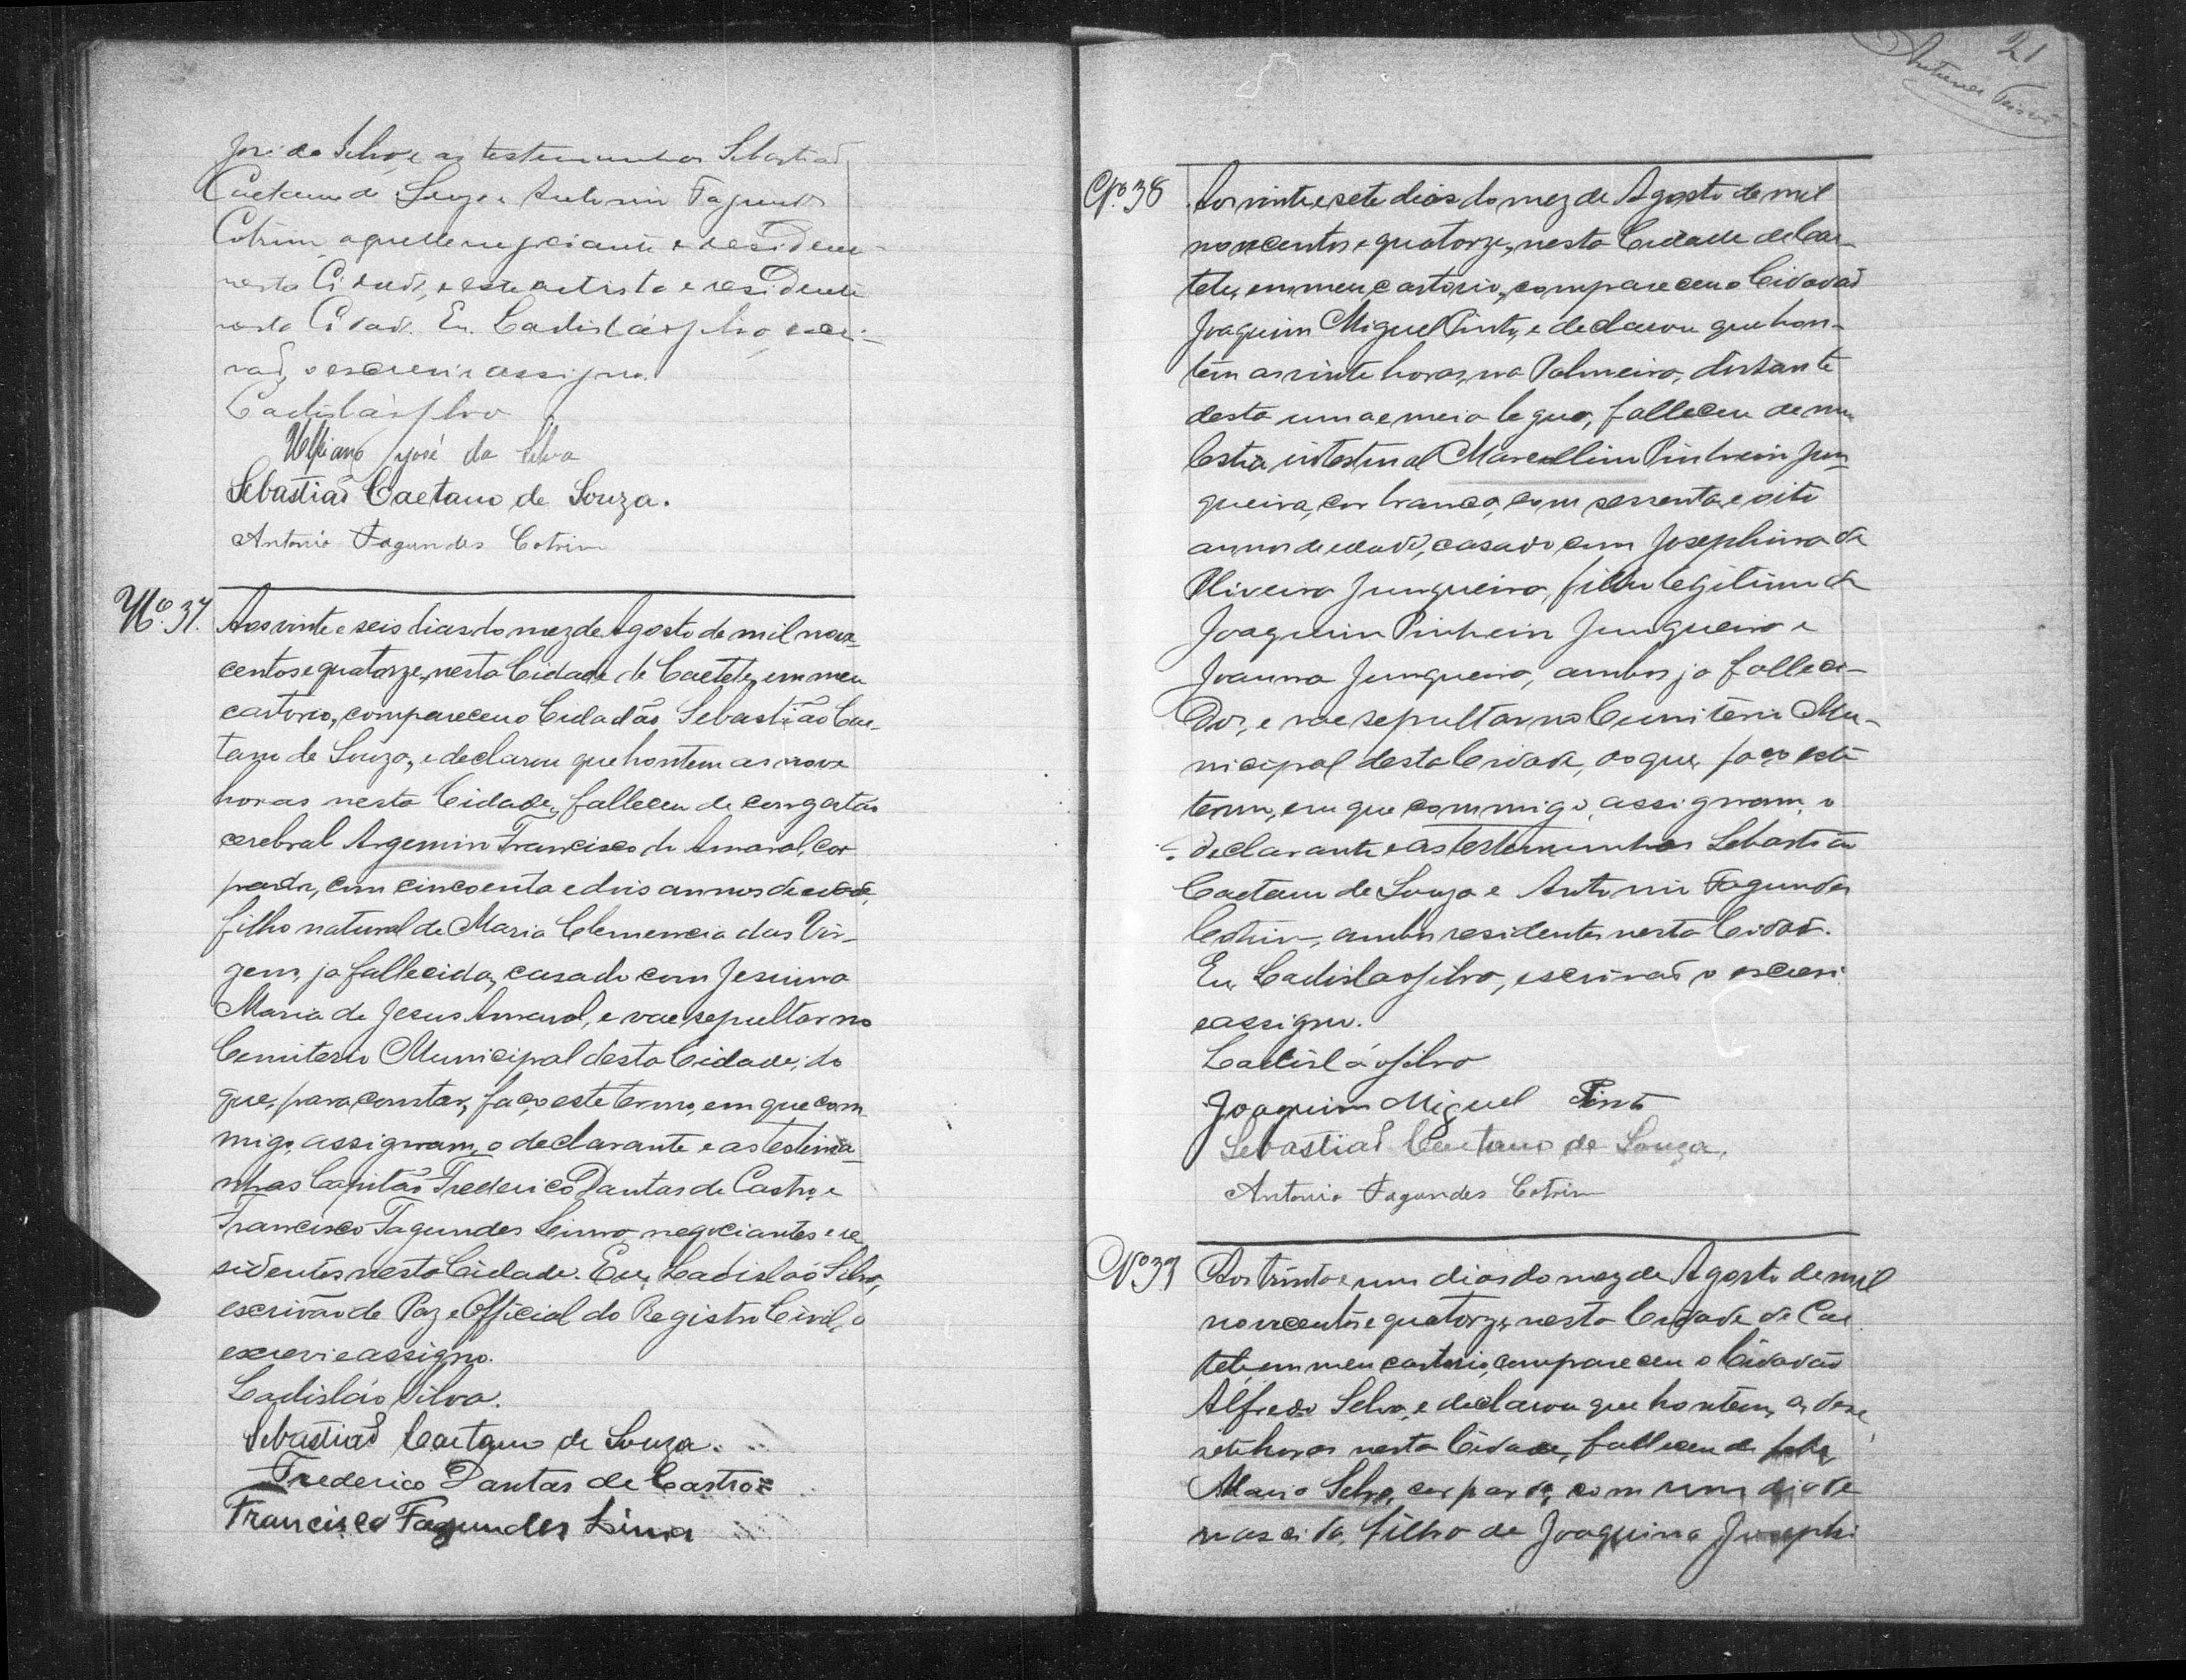 José da Silva, e as testemunhas Sebastião
Caetano de Souza e Antonio Fagundes
Cotrim, aquelle negociante e residente
nesta Cidade, e este artista e residente
nesta Cidade. Eu, Ladisláo Silva, escri-
vaõ, o escrevi e assigno.
Ladisláo Silva
Ulpiano José da Silva
Sebastiaõ Caetano de Souza.
Antonio Fagundes Cotrim
Nº. 37.
Aos vinte e seis dias do mez de Agosto de mil nove-
centos e quatorze, nesta Cidade de Caeteté, em meu
cartorio, compareceu o Cidadão Sebastião Cae-
tano de Souza, e declarou que hontem as nove
horas nesta Cidade, falleceu de congestão
cerebral Argemiro Francisco do Amaral, cor
parda, com cincoenta e dois annos de edade,
filho natural de Maria Clemencia das Vir-
gens, ja fallecida, casado com Jesuina
Maria de Jesus Amaral, e vae sepultar no
Cemiterio Municipal desta Cidade, do
que, para constar, faço este termo, em que com-
migo, assignam, o declarante e as testimu-
nhas Capitão Frederico Dantas de Castro, e
Francisco Fagundes Lima, negociantes e re-
sidentes nesta Cidade. Eu, Ladisláo Silva,
escrivão de Paz e Official do Registro Civil, o
escrevi e assigno.
Ladisláo Silva.
Sebastiaõ Caetano de Souza.
Frederico Dantas de Castro
Francisco Fagundes Lima
21
Nº. 38
Aos vinte e sete dias do mez de Agosto de mil
novecentos e quatorze, nesta Cidade de Cae-
teté, em meu cartorio, compareceu o Cidadaõ
Joaquim Miguel Pinto, e declarou que hon-
tem as vinte horas, na Palmeira, distante
desta uma e meia legua, falleceu de mo-
lestia intestinal Marcellino Pinheiro Jun-
queira, cor branca, com sessenta e oito
annos de edade, casado com Josephina de
Oliveira Junqueira, filho legitimo de
Joaquim Pinheiro Junqueira e
Joanna Junqueira, ambos ja falleci-
dos, e vae sepultar no Cemiterio Mu-
nicipal desta Cidade, do que, faço este
termo, em que commigo, assignam, o
declarante e as testemunhas Sebastião
Caetano de Souza e Antonio Fagundes
Cotrim, ambos residentes nesta Cidade.
Eu, Ladisláo Silva, escrivaõ o escrevi
e assigno.
Ladisláo Silva
Joaquim Miguel Pinto
Sebastiaõ Caetano de Souza.
Antonio Fagundes Cotrim
Nº 39
Aos trinta e um dias do mez de Agosto de mil
novecentos e quatorze, nesta Cidade de Cae
teté, em meu cartorio, compareceu o Cidadão
Alfredo Silva, e declarou que hontem, as deze-
sete horas nesta Cidade, falleceu de
Maria Silva, cor parda, com um dia de
nascida, filha de Joaquina Josephi